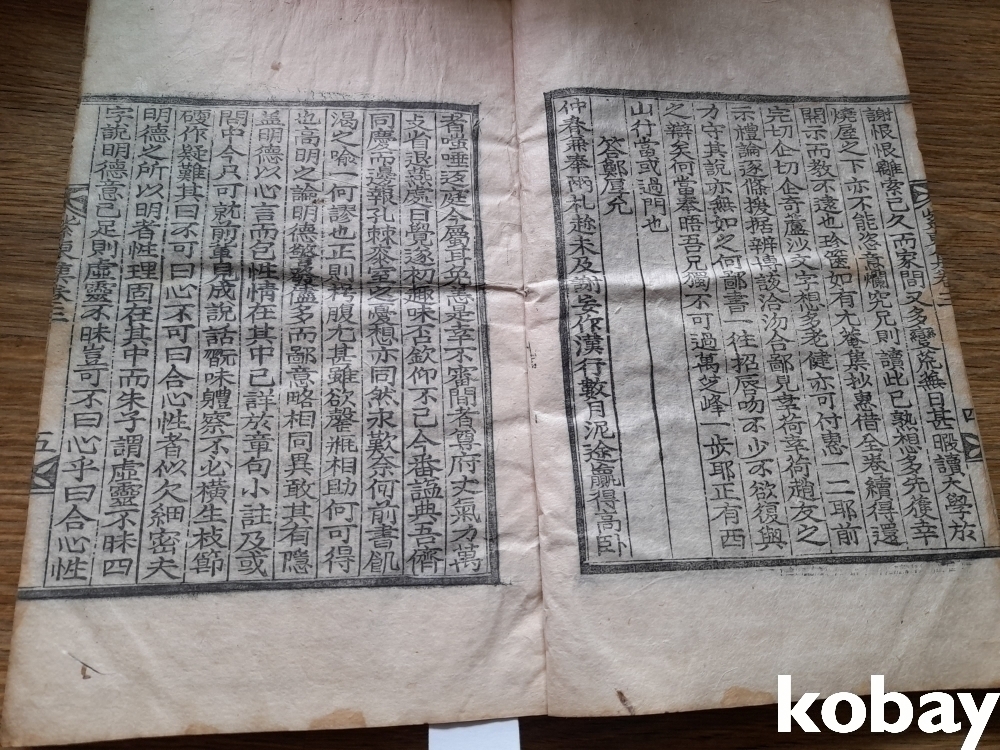 謝恨恨離索已久而家間又多變荒無日甚暇讀大學於
燒屋之下亦不能恣意爛究兄則讀此已熟想多先獲幸
開示而教不逮也珍篋如有尤菴集抄惠借全卷續得還
完切企切企奇蘆沙文字想多老健亦可付惠一二耶前
示禮論逐條援据辨博該洽沕合鄙見幸荷幸荷趙友之
力守其說亦無如之何鄙書一往招唇吻不少不欲復與
之辯矣何當奉晤吾兄獨不可過萬芝峰一步耶正有西
山行當或過門也
答鄭厚允
仲春兼奉兩札趁未及謝妄作漢行數月泥途贏得高臥
者嗤唾汝庭今屬耳免怎是幸不審間者尊府丈氣力萬
支省退燕處日覺遂初趣味古欽仰不已今番謚典吾儕
同慶而邊報孔棘泰室之憂想亦同然永歎奈何前書飢
渴之喩一何謬也正則枵腹尤甚雖欲罄甁相助何可得
也高明之論明德盤桓儘多而鄙意略相同異敢其有隱
盖明德以心言而包性情在其中已詳於章句小註及或
問中今只可就前輩見成說話翫味體察不必橫生枝節
硬作疑難其曰不可曰心不可曰合心性者似欠細密夫
明德之所以明者性理固在其中而朱子謂虛靈不昧四
字說明德意已足則虛靈不昧豈可不曰心乎曰合心性
四
五
kobay